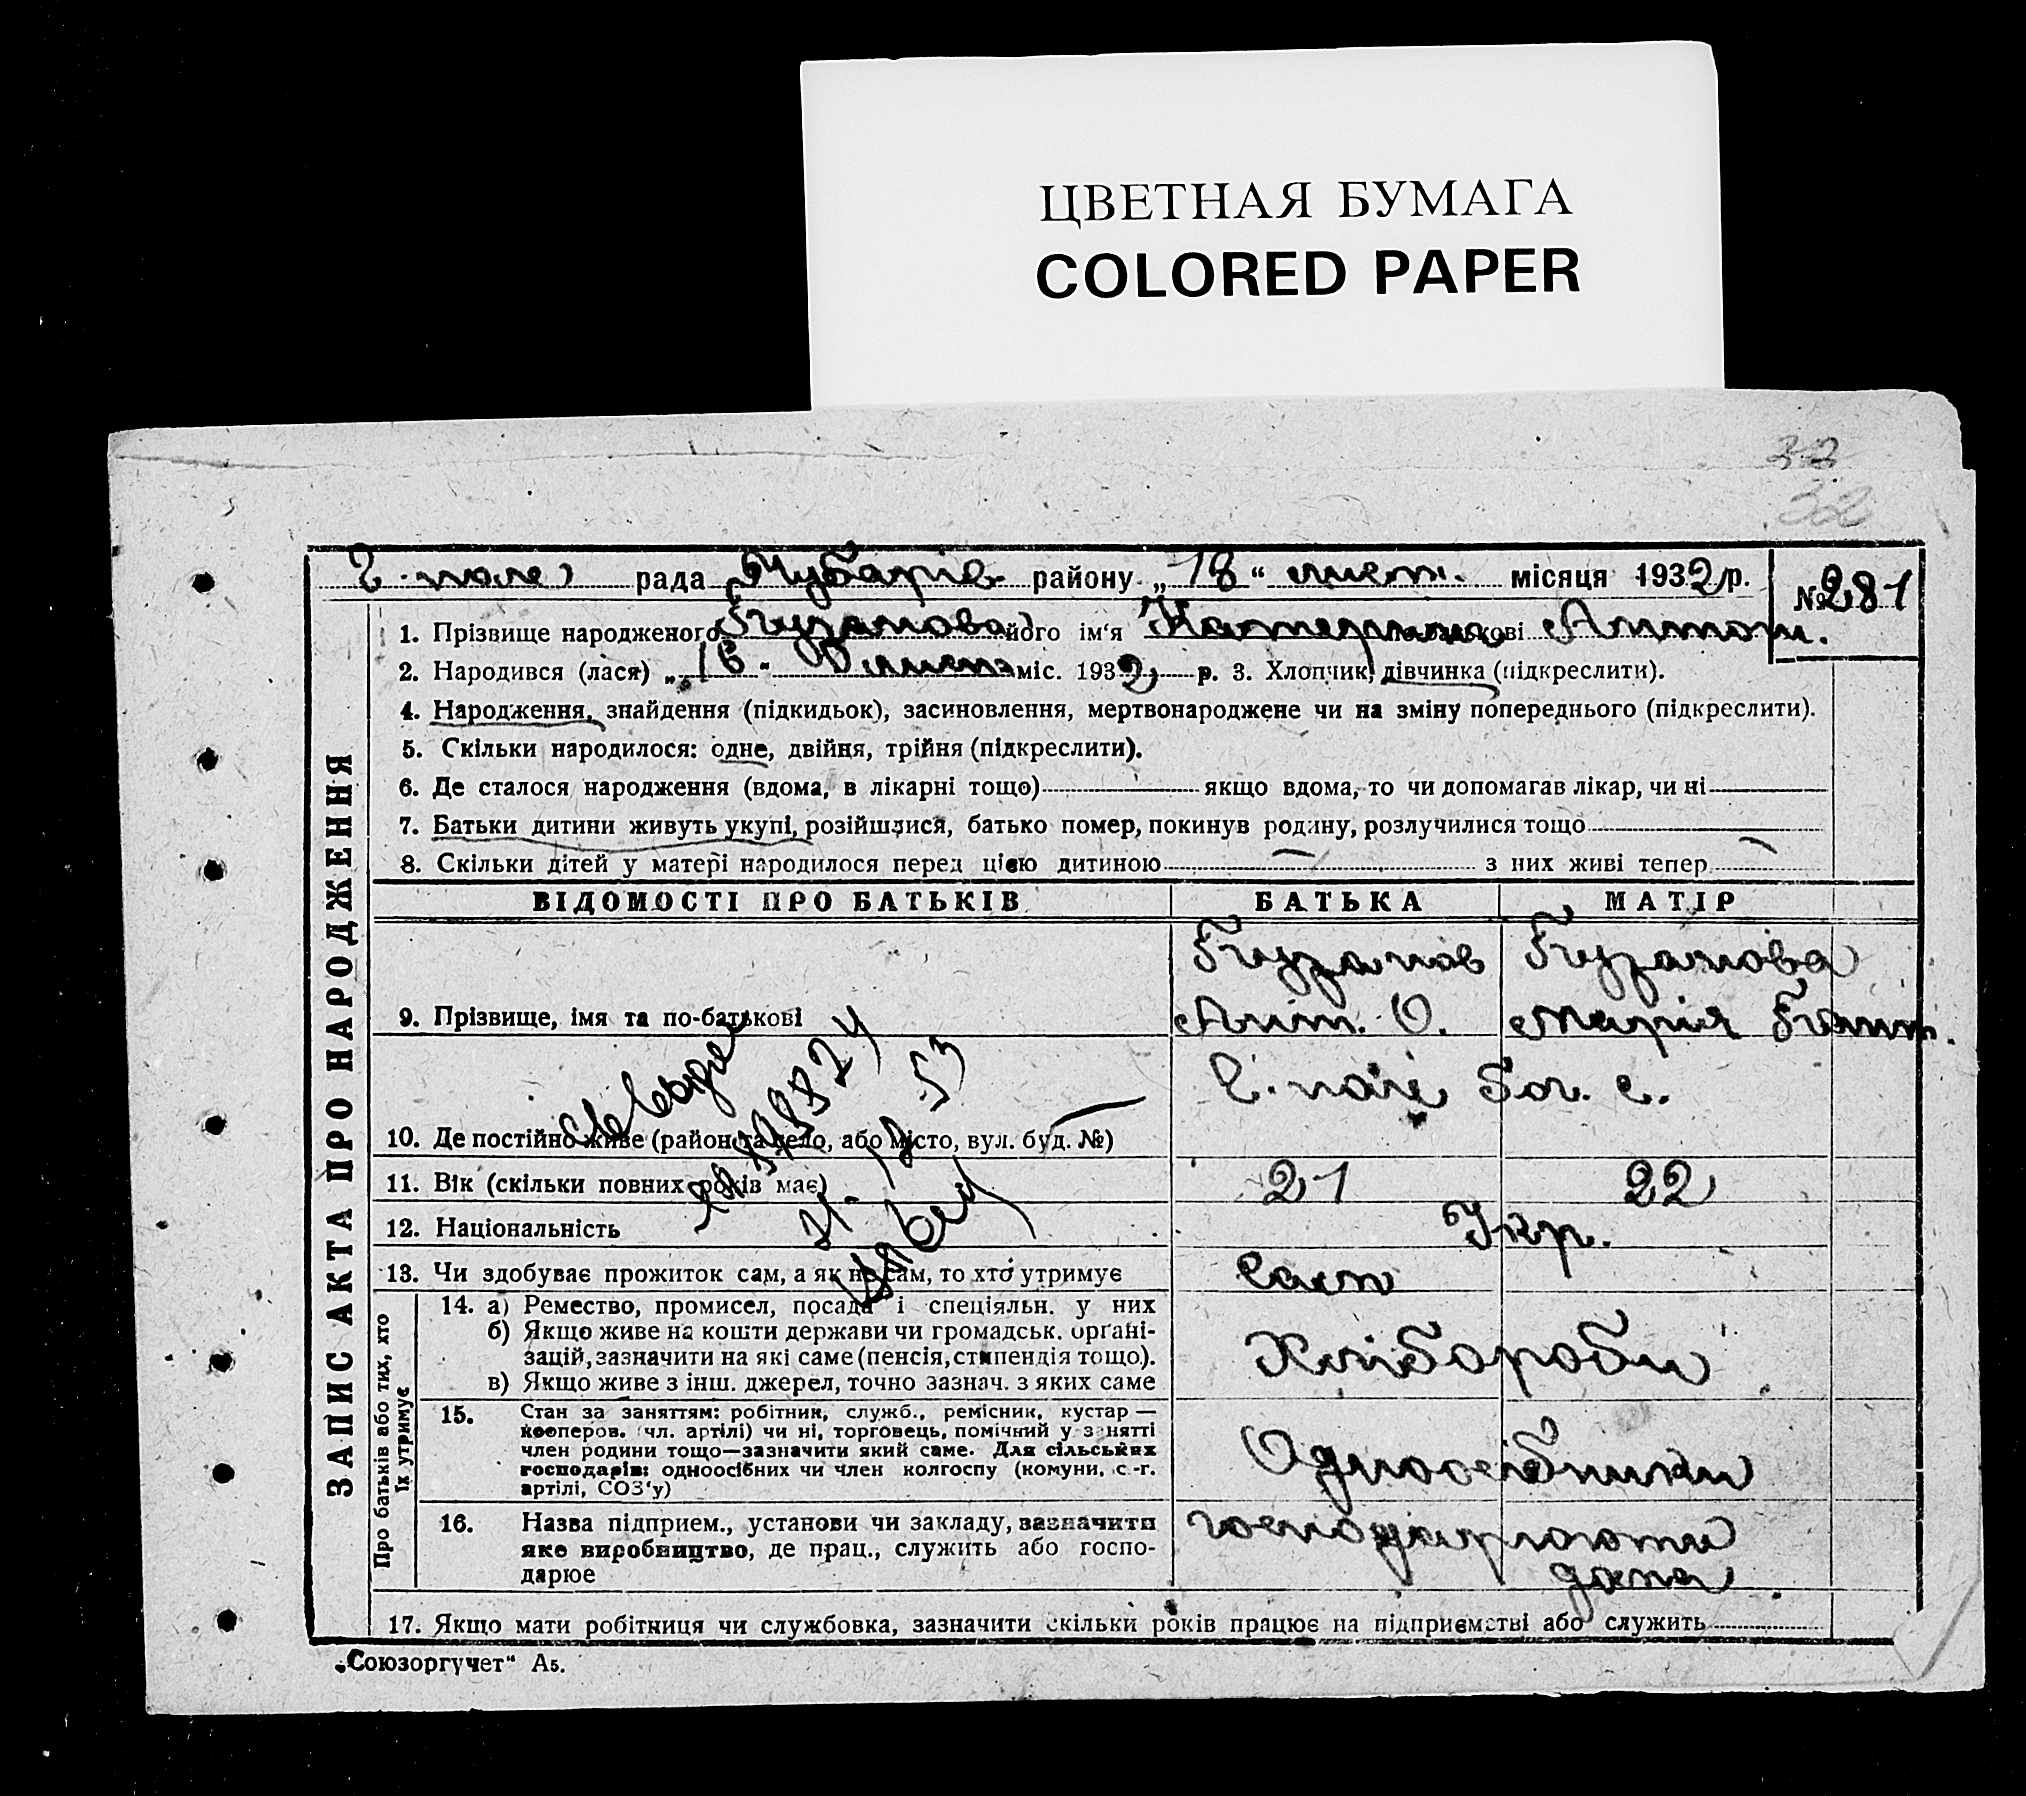 ЦВЕТНАЯ БУМАГА
COLORED PAPER
32
32
Г. поле рада Чубарів. району „18“ лист. місяця 1932 р. № 281
1. Прізвище народженого його ім'я Катерина по батькові Антон.
2. Народився (лася) „16“ міс. 1932 р. 3. Хлопчик, дівчинка (підкреслити).
4. Народження, знайдення (підкидьок), засиновлення, мертвонароджене чи на зміну попереднього (підкреслити).
5. Скільки народилося: одне, двійня, трійня (підкреслити).
6. Де сталося народження (вдома, в лікарні тощо) якщо вдома, то чи допомагав лікар, чи ні
7. Батьки дитини живуть укупі, розійшлися, батько помер, покинув родину, розлучилися тощо
8. Скільки дітей у матері народилося перед цією дитиною — з них живі тепер —
ЗАПИС АКТА ПРО НАРОДЖЕННЯ
ВІДОМОСТІ ПРО БАТЬКІВ БАТЬКА МАТІР
9. Прізвище, імя та по-батькові
Ант. О. Марія
10. Де постійно живе (район та село, або місто, вул. буд. №)
11. Вік (скільки повних років має) 21 22
12. Національність Укр.
13. Чи здобуває прожиток сам, а як не сам, то хто утримує сам
Про батьків або тих, хто їх утримує
14. а) Ремество, промисел, посада і спеціяльн. у них
б) Якщо живе на кошти держави чи громадськ. органі-
зацій, зазначити на які саме (пенсія, стипендія тощо).
в) Якщо живе з інш. джерел, точно зазнач. з яких саме
Хлібороби
15. Стан за заняттям: робітник, служб., ремісник, кустар —
кооперов. (чл. артілі) чи ні, торговець, помічний у занятті
член родини тощо—зазначити який саме. Для сільських
господарів: одноосібних чи член колгоспу (комуни, с.-г.
артілі, СОЗ'у)
Одноосібники
16. Назва підприєм., установи чи закладу, зазначити
яке виробництво, де прац., служить або госпо-
дарює
господарюють
дома
17. Якщо мати робітниця чи службовка, зазначити скільки років працює на підприємстві або служить
„Союзоргучет“ А5.